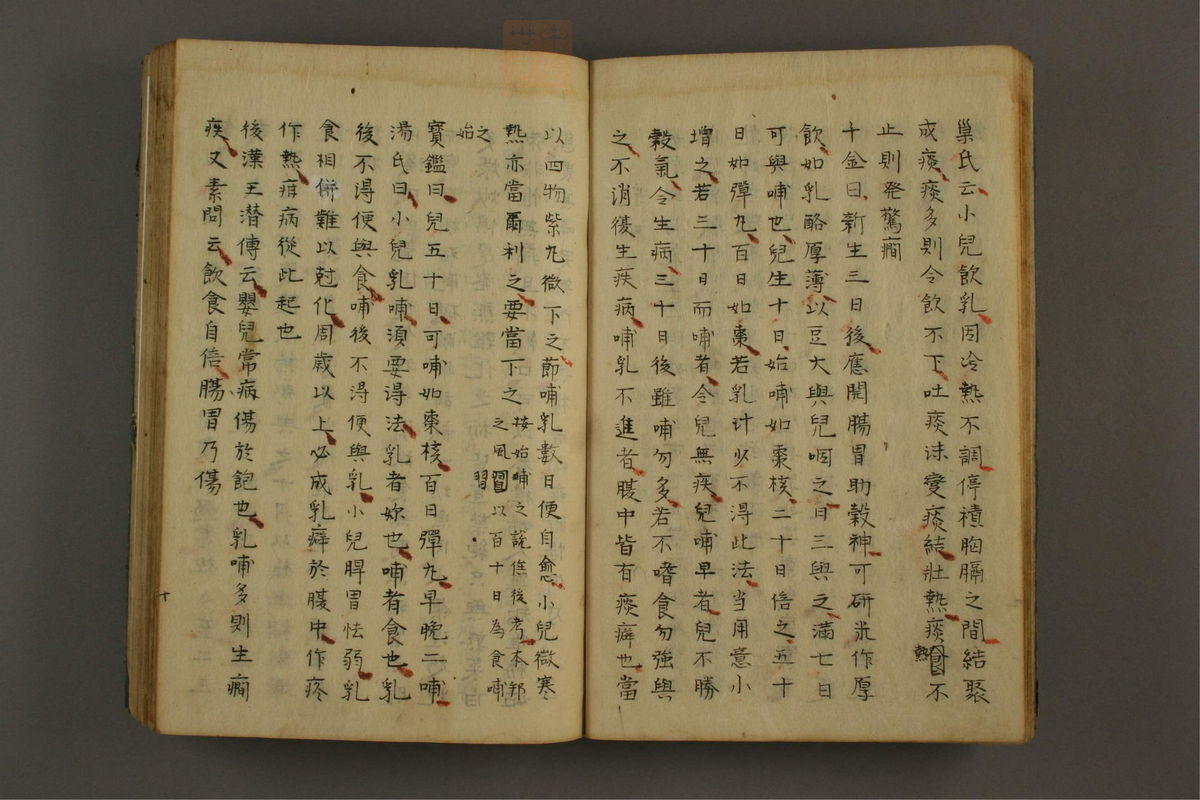 巢氏云小兒飲乳因冷熱不調停積胸膈之間結聚
成痰痰多則令飲不下吐痰沫變痰結壯熱痰食不
熱
止則発驚癇
千金曰新生三日後應開腸胃助穀神可研米作厚
飲如乳酪厚薄以豆大與兒咽之日三與之滿七日
可與哺也兒生十日始哺如棗核二十日倍之五十
日如彈丸百日如棗若乳汁少不得此法当用意小
增之若三十日而哺者令兒無疾兒哺早者兒不勝
穀氣令生病三十日後雖哺勿多若不嗜食勿強與
之不消復生疾病哺乳不進者腹中皆有痰癖也當
以四物紫丸微下之節哺乳數日便自愈小兒微寒
熱亦當爾利之要當下之按始哺之説隹後考本邦
之風習以百十日為食哺
習
之始
寶鑑曰兒五十日可哺如棗核百日彈丸早晚二哺
湯氏曰小兒乳哺須要得法乳者妳也哺者食也乳
後不得便與食哺後不得便與乳小兒脾胃怯弱乳
食相併難以尅化周歲以上必成乳癖於腹中作疼
作熱疳病從此起也
後漢王潜傳云嬰兒常病傷於飽也乳哺多則生癇
疾又素問云飲食自倍腸胃乃傷
十